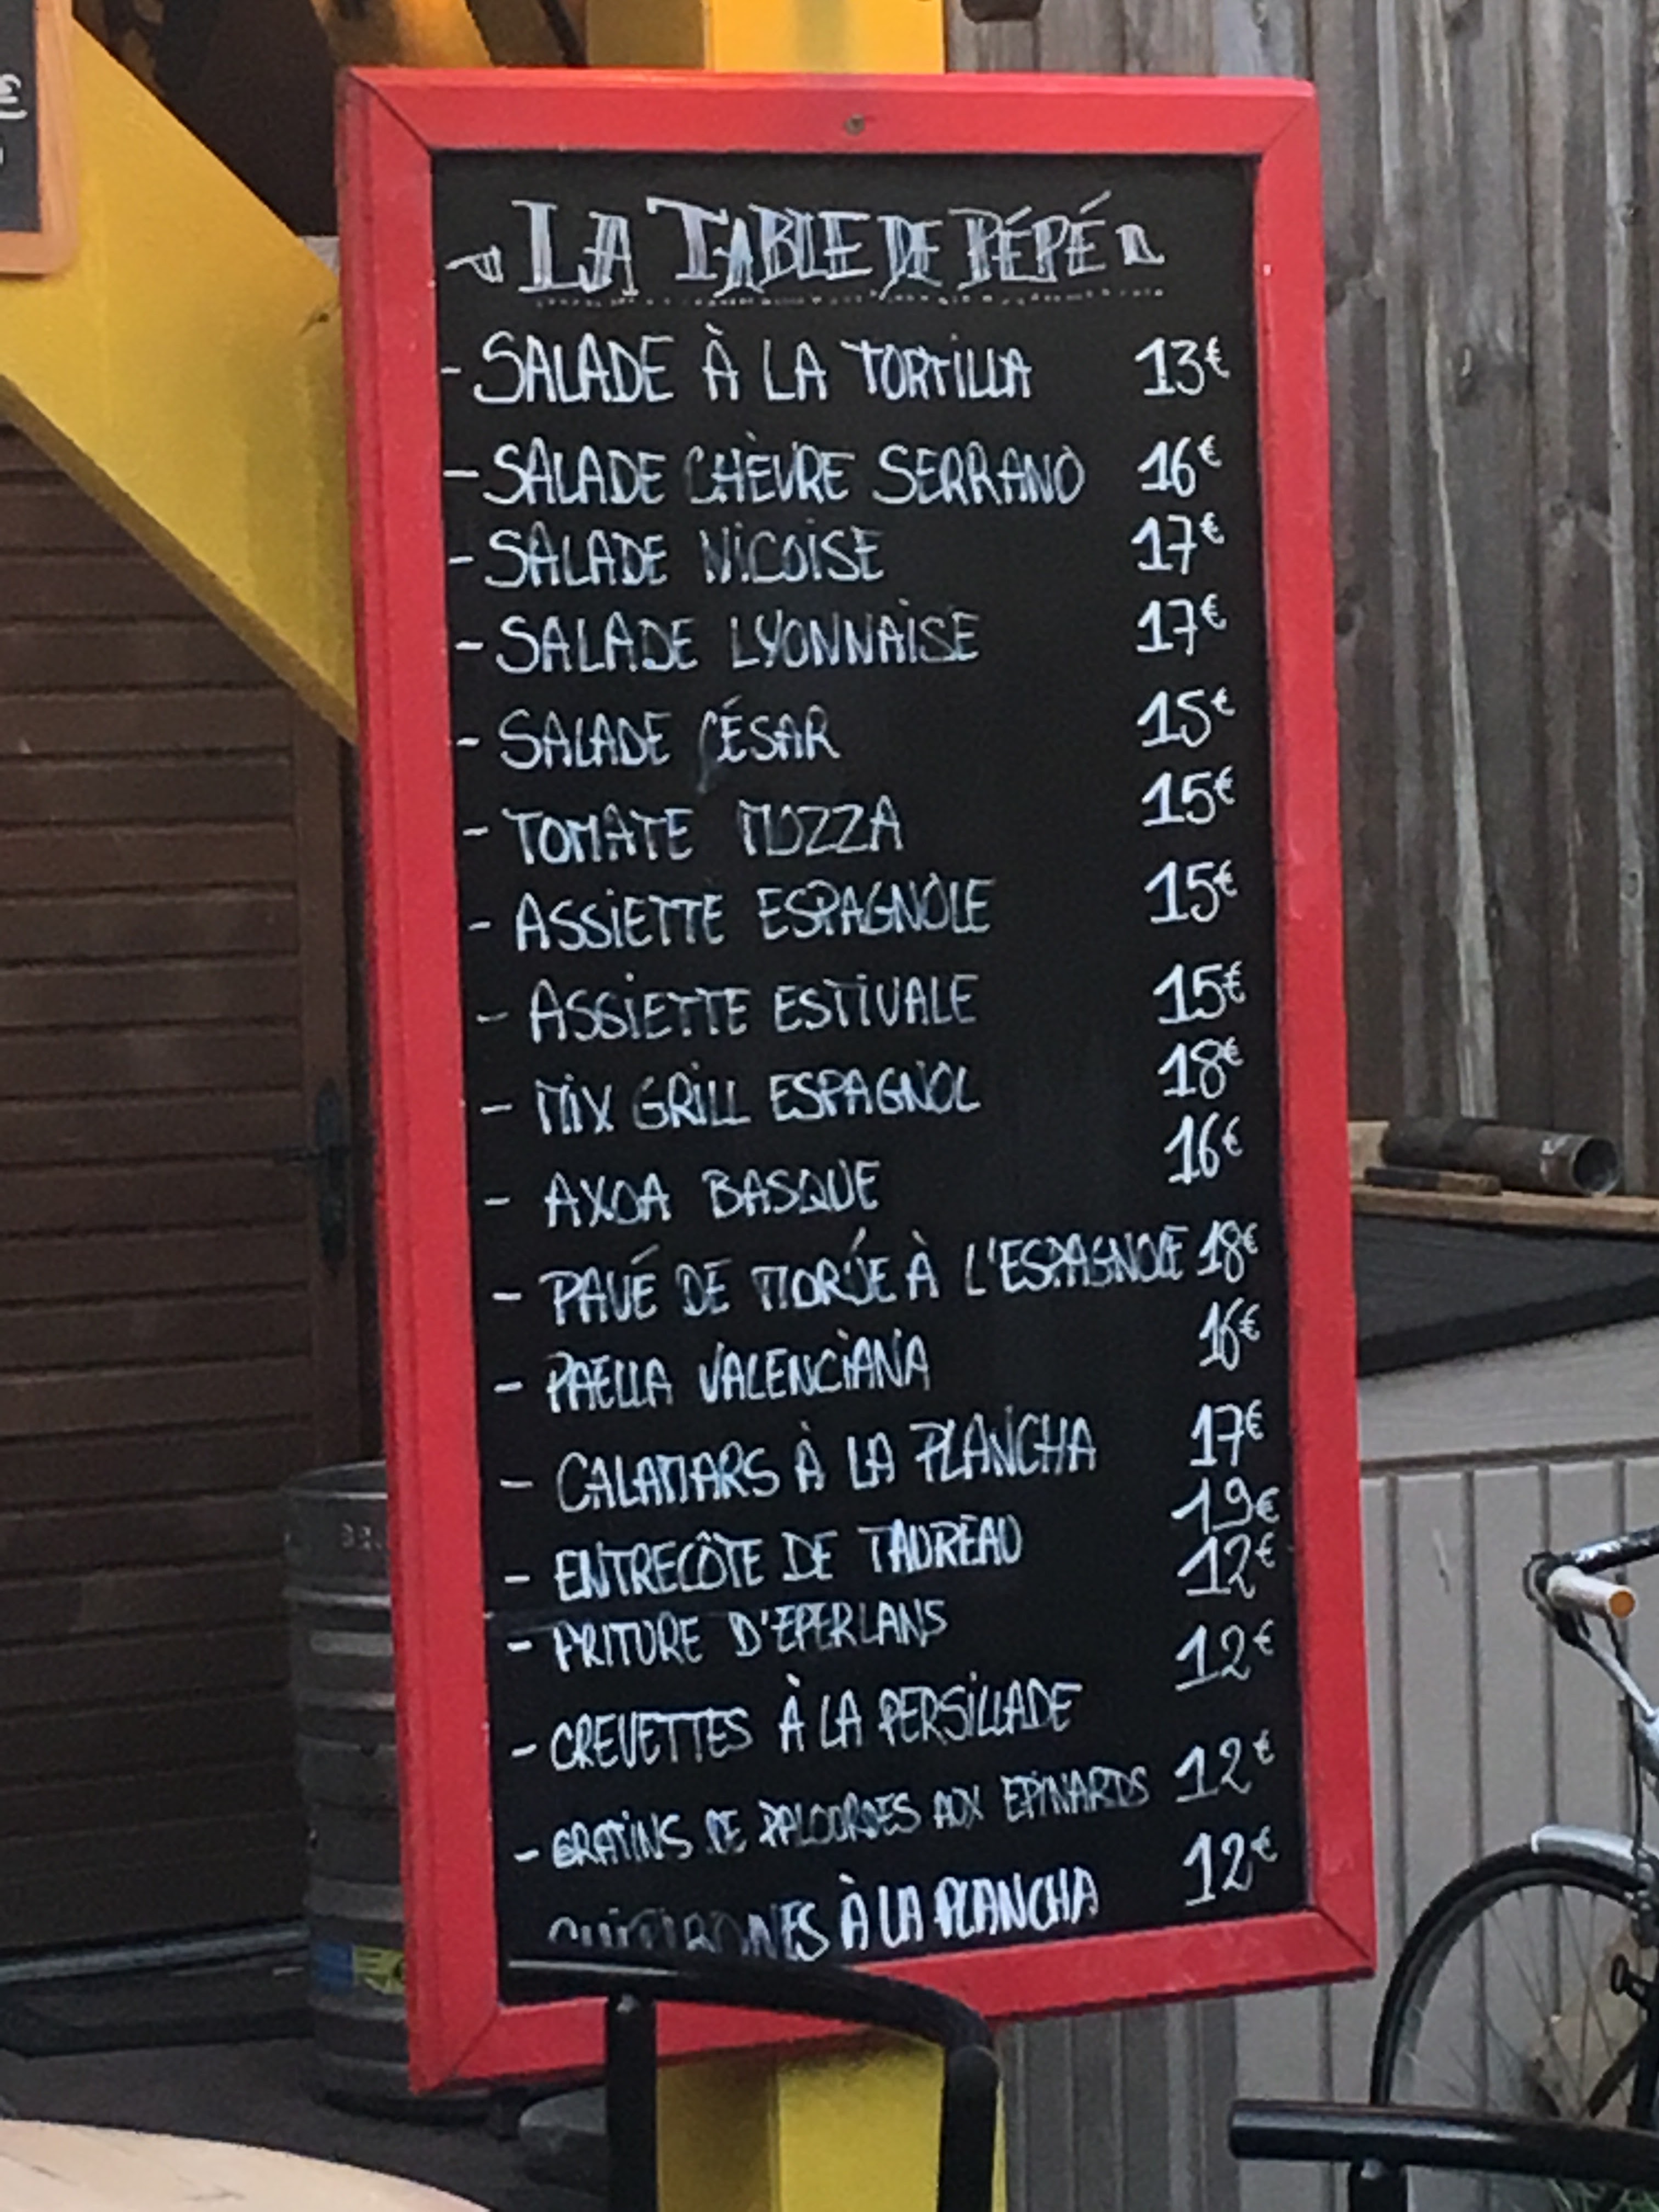 LA TABLE DE PÉPÉ
- SALADE À LA TORTILLA 13€
- SALADE CHÈVRE SERRANO 16€
- SALADE NICOISE 17€
- SALADE LYONNAISE 17€
- SALADE CÉSAR 15€
- TOMATE MOZZA 15€
- ASSIETTE ESPAGNOLE 15€
- ASSIETTE ESTIVALE 15€
- MIX GRILL ESPAGNOL 18€
- AXOA BASQUE 16€
- PAVÉ DE MORUE À L'ESPAGNOLE 18€
- PAELLA VALENCIANA 16€
- CALAMARS À LA PLANCHA 17€
- ENTRECÔTE DE TAUREAU 19€
- FRITURE D'EPERLANS 12€
- CREVETTES À LA PERSILLADE 12€
- GRATINS DE PALOURDES AUX EPINARDS 12€
À LA PLANCHA 12€
€